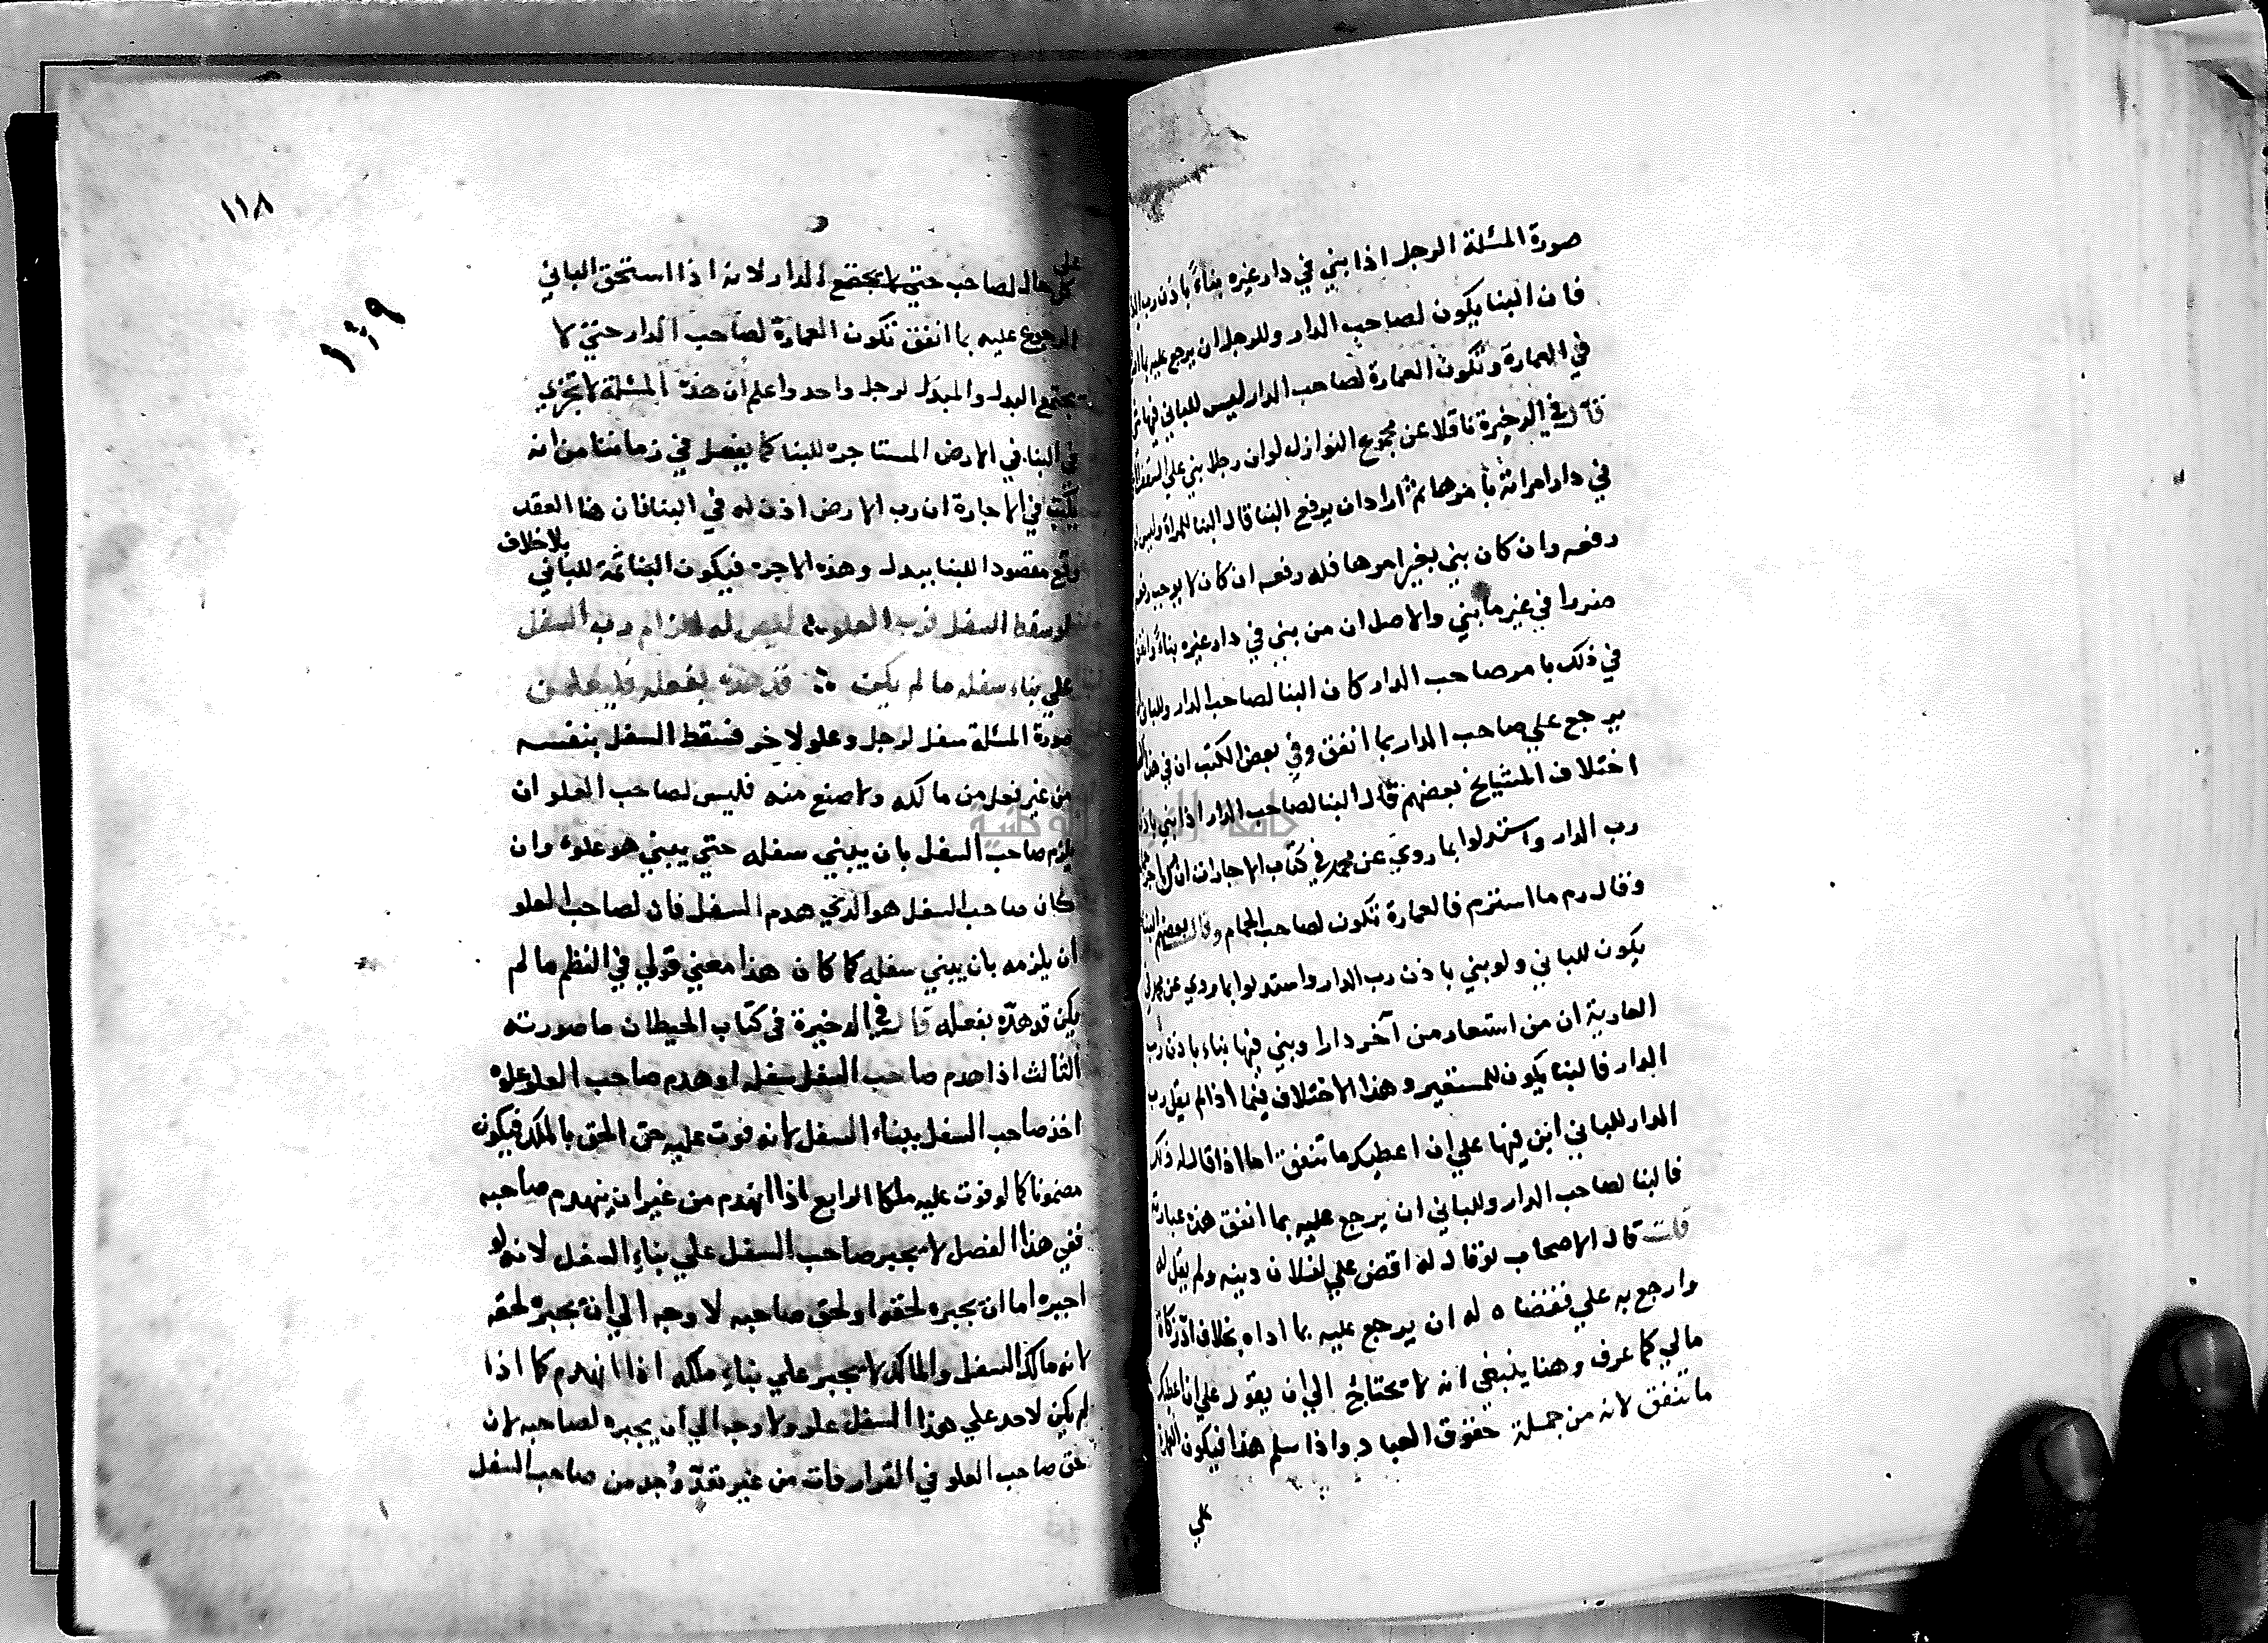 صورة المسئلة الرجل اذا بني في دار غيره بناءً باذن رب
فان البنا يكون لصاحب الدار وللرجل ان يرجع عليه بما
في العمارة وتكون العمارة لصاحب الدار ليس للباني فيها
قال في الذخيرة ناقلا عن مجموع النوازل لو ان رجلا بني علي السقف
في دار امراته بامرها ثم اراد ان يرفع البنا قال البنا للمراة وليس
رفعه وان كان بني بغير امرها فله رفعه ان كان لا يوجب رفعه
ضررا في غير ما بني والاصل ان من بني في دار غيره بناءً وانفق
في ذلك بامر صاحب الدار كان البنا لصاحب الدار وللباني
يرجع علي صاحب الدار بما انفق وفي بعض الكتب ان في هذا
اختلاف المشايخ بعضهم قال البنا لصاحب الدار اذا بني باذن
رب الدار واستدلوا بما روي عن محمد في كتاب الاجارات ان
وقال رم ما استرم فالعمارة تكون لصاحب الحمام وقال بعضهم البنا
يكون للباني ولو بني باذن رب الدار واستدلوا بما روي عن محمد في
العارية ان من استعار من آخر دارا وبني فيها بناء باذن رب
الدار فالبنا يكون للمستعير وهذا الاختلاف فيما اذا لم يقل رب
الدار للباني ابن فيها علي ان اعطيك ما تنفق اما اذا قال له ذلك
فالبنا لصاحب الدار وللباني ان يرجع عليه بما انفق هذه عبارته
قلت قال الاصحاب لو قال له اقض علي لفلان دينه ولم يقل له
وارجع به علي فقضاه له ان يرجع عليه بما اداه بخلاف اد زكاة
مالي كما عرف وهنا ينبغي انه لا يحتاج الي ان يقول علي ان اعطيك
ما تنفق لانه من جملة حقوق العباد واذا سلم هذا فيكون العمارة
علي
١١٨
١١٩
علي
كل حال لصاحب حتي لا يجتمع الدار لانه اذا استحق الباني
الرجوع عليه بما انفق تكون العمارة لصاحب الدار حتي لا
يجتمع البدل والمبدل لرجل واحد واعلم ان هذه المسئلة لا تجري
في البنا في الارض المستاجرة للبنا كما يفعل في زماننا من انه
يكتب في الاجارة ان رب الارض اذن له في البنا فان هنا العقد
بلا خلاف
وقع مقصودا للبنا ببدل وهذه الاجرة فيكون البنا ثمة للباني
لو سقط السفل لرب العلو ليس له الزام رب السفل
علي بناء سفله ما لم يكن قد هده بفعله فليعلمن
صورة المسئلة سفل لرجل وعلو لاخر فسقط السفل بنفسه
من غير فعل من مالكه ولا صنع منه فليس لصاحب العلو ان
يلزم صاحب السفل بان يبني سفله حتي يبني هو علوه وان
كان صاحب السفل هو الذي هدم السفل فان لصاحب العلو
ان يلزمه بان يبني سفله كما كان هذا معني قولي في النظم ما لم
يكن قد هدّه بفعله قال في الذخيرة في كتاب الحيطان ما صورته
الثالث اذا هدم صاحب السفل سفله او هدم صاحب العلو علوه
اخذ صاحب السفل ببناء السفل لانه فوت عليه حق الحق بالملك فيكون
مضمونا كما لو فوت عليه ملكا الرابع اذا انهدم من غير ان يهدم صاحبه
ففي هذا الفصل لا يجبر صاحب السفل علي بناء السفل لانه لو
اجبره اما ان يجبره لحقه او لحق صاحبه لا وجه الي ان يجبره لحقه
لانه مالك السفل والمالك لا يجبر علي بناء ملكه اذا انهدم كما اذا
لم يكن لاحد علي هذا السفل علو ولا وجه الي ان يجبره لصاحبه لان
حق صاحب العلو في القرار فات من غير تعد وجد من صاحب السفل